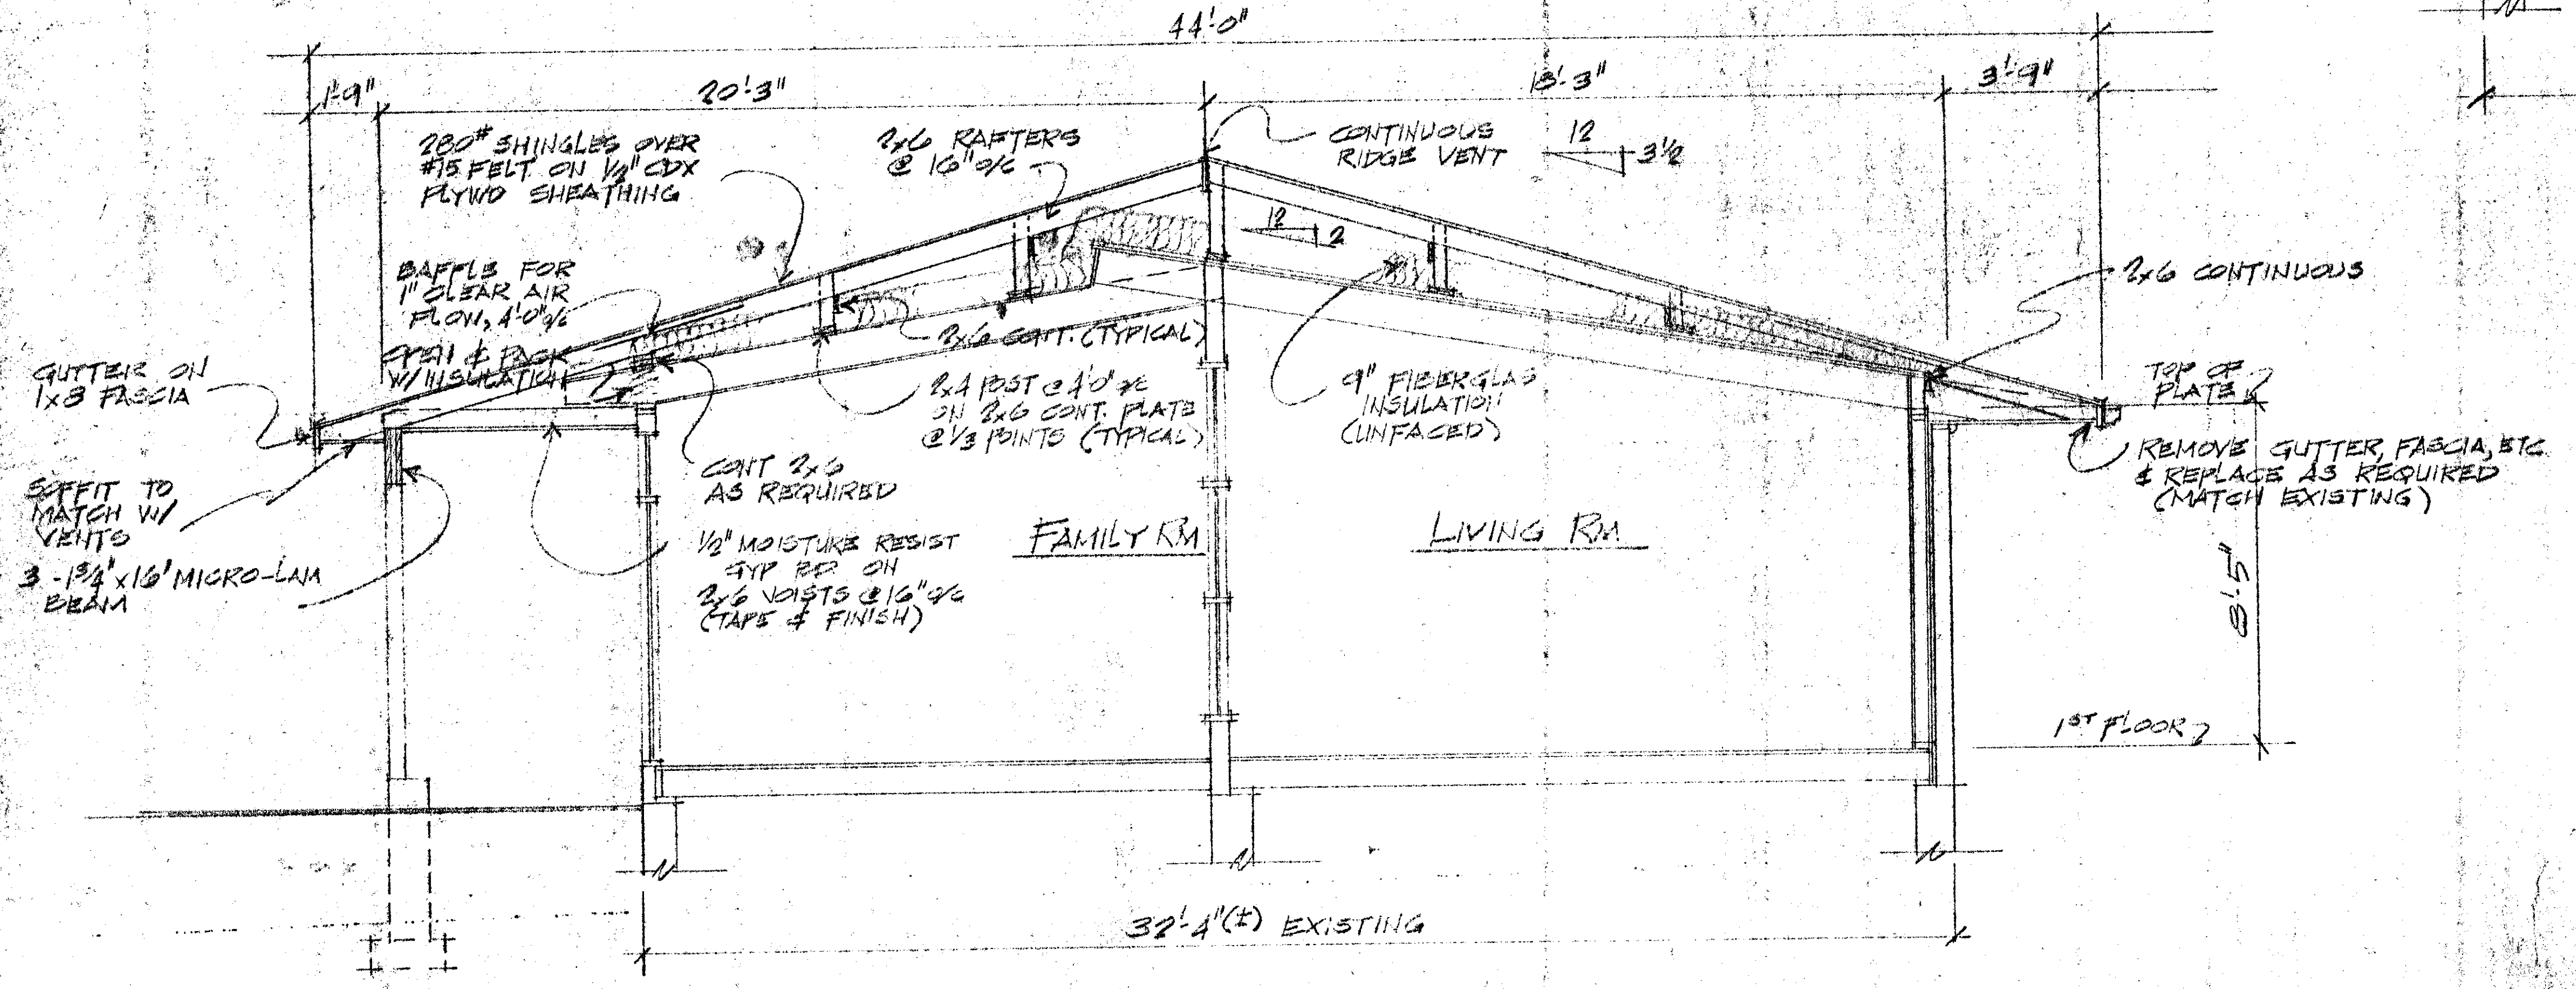 44'-0"
1'-9"
20'-3"
18'-3"
3'-9"
280# SHINGLES OVER
#15 FELT ON 1/2" CDX
PLYWD SHEATHING
2x6 RAFTERS
@ 16" o/c
CONTINUOUS
RIDGE VENT
12
3 1/2
12
2
BAFFLE FOR
1" CLEAR AIR
FLOW, 4'-0" o/c
OPEN & PACK
W/ INSULATION
2x6 CONT. (TYPICAL)
2x6 CONTINUOUS
GUTTER ON
1x8 FASCIA
2x4 POST @ 4'-0" o/c
ON 2x6 CONT. PLATE
@ 1/3 POINTS (TYPICAL)
9" FIBERGLAS
INSULATION
(UNFACED)
TOP OF
PLATE
REMOVE GUTTER, FASCIA, ETC
& REPLACE AS REQUIRED
(MATCH EXISTING)
CONT 2x6
AS REQUIRED
SOFFIT TO
MATCH W/
VENTS
3 - 1 3/4" x 16" MICRO-LAM
BEAM
1/2" MOISTURE RESIST
GYP BD. ON
2x6 JOISTS @ 16" o/c
(TAPE & FINISH)
FAMILY RM
LIVING RM
8'-5"
1ST FLOOR
32'-4" (±) EXISTING